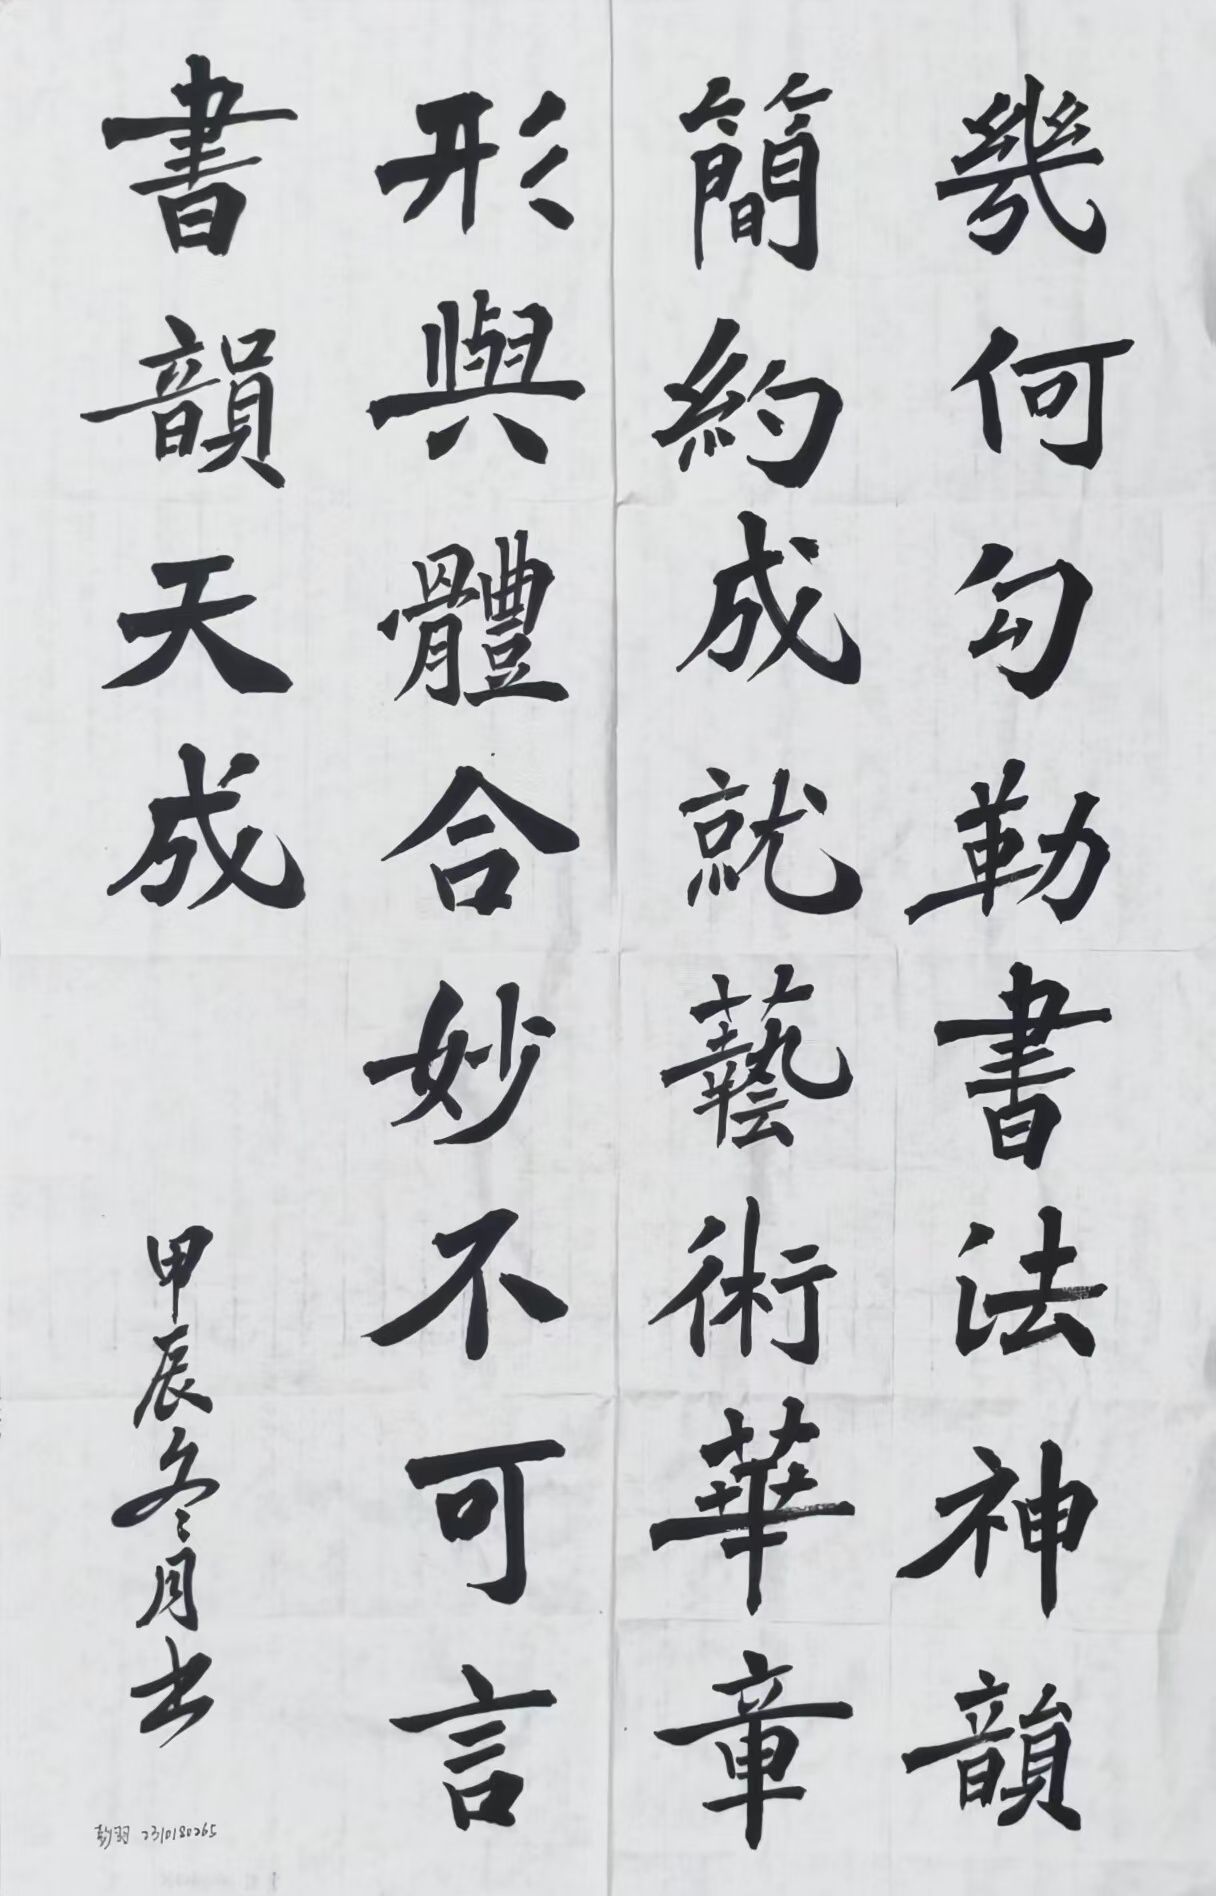 幾何勾勒書法神韻
簡約成就藝術華章
形與體合妙不可言
書韻天成
甲辰冬月书
彭羽 2310180265